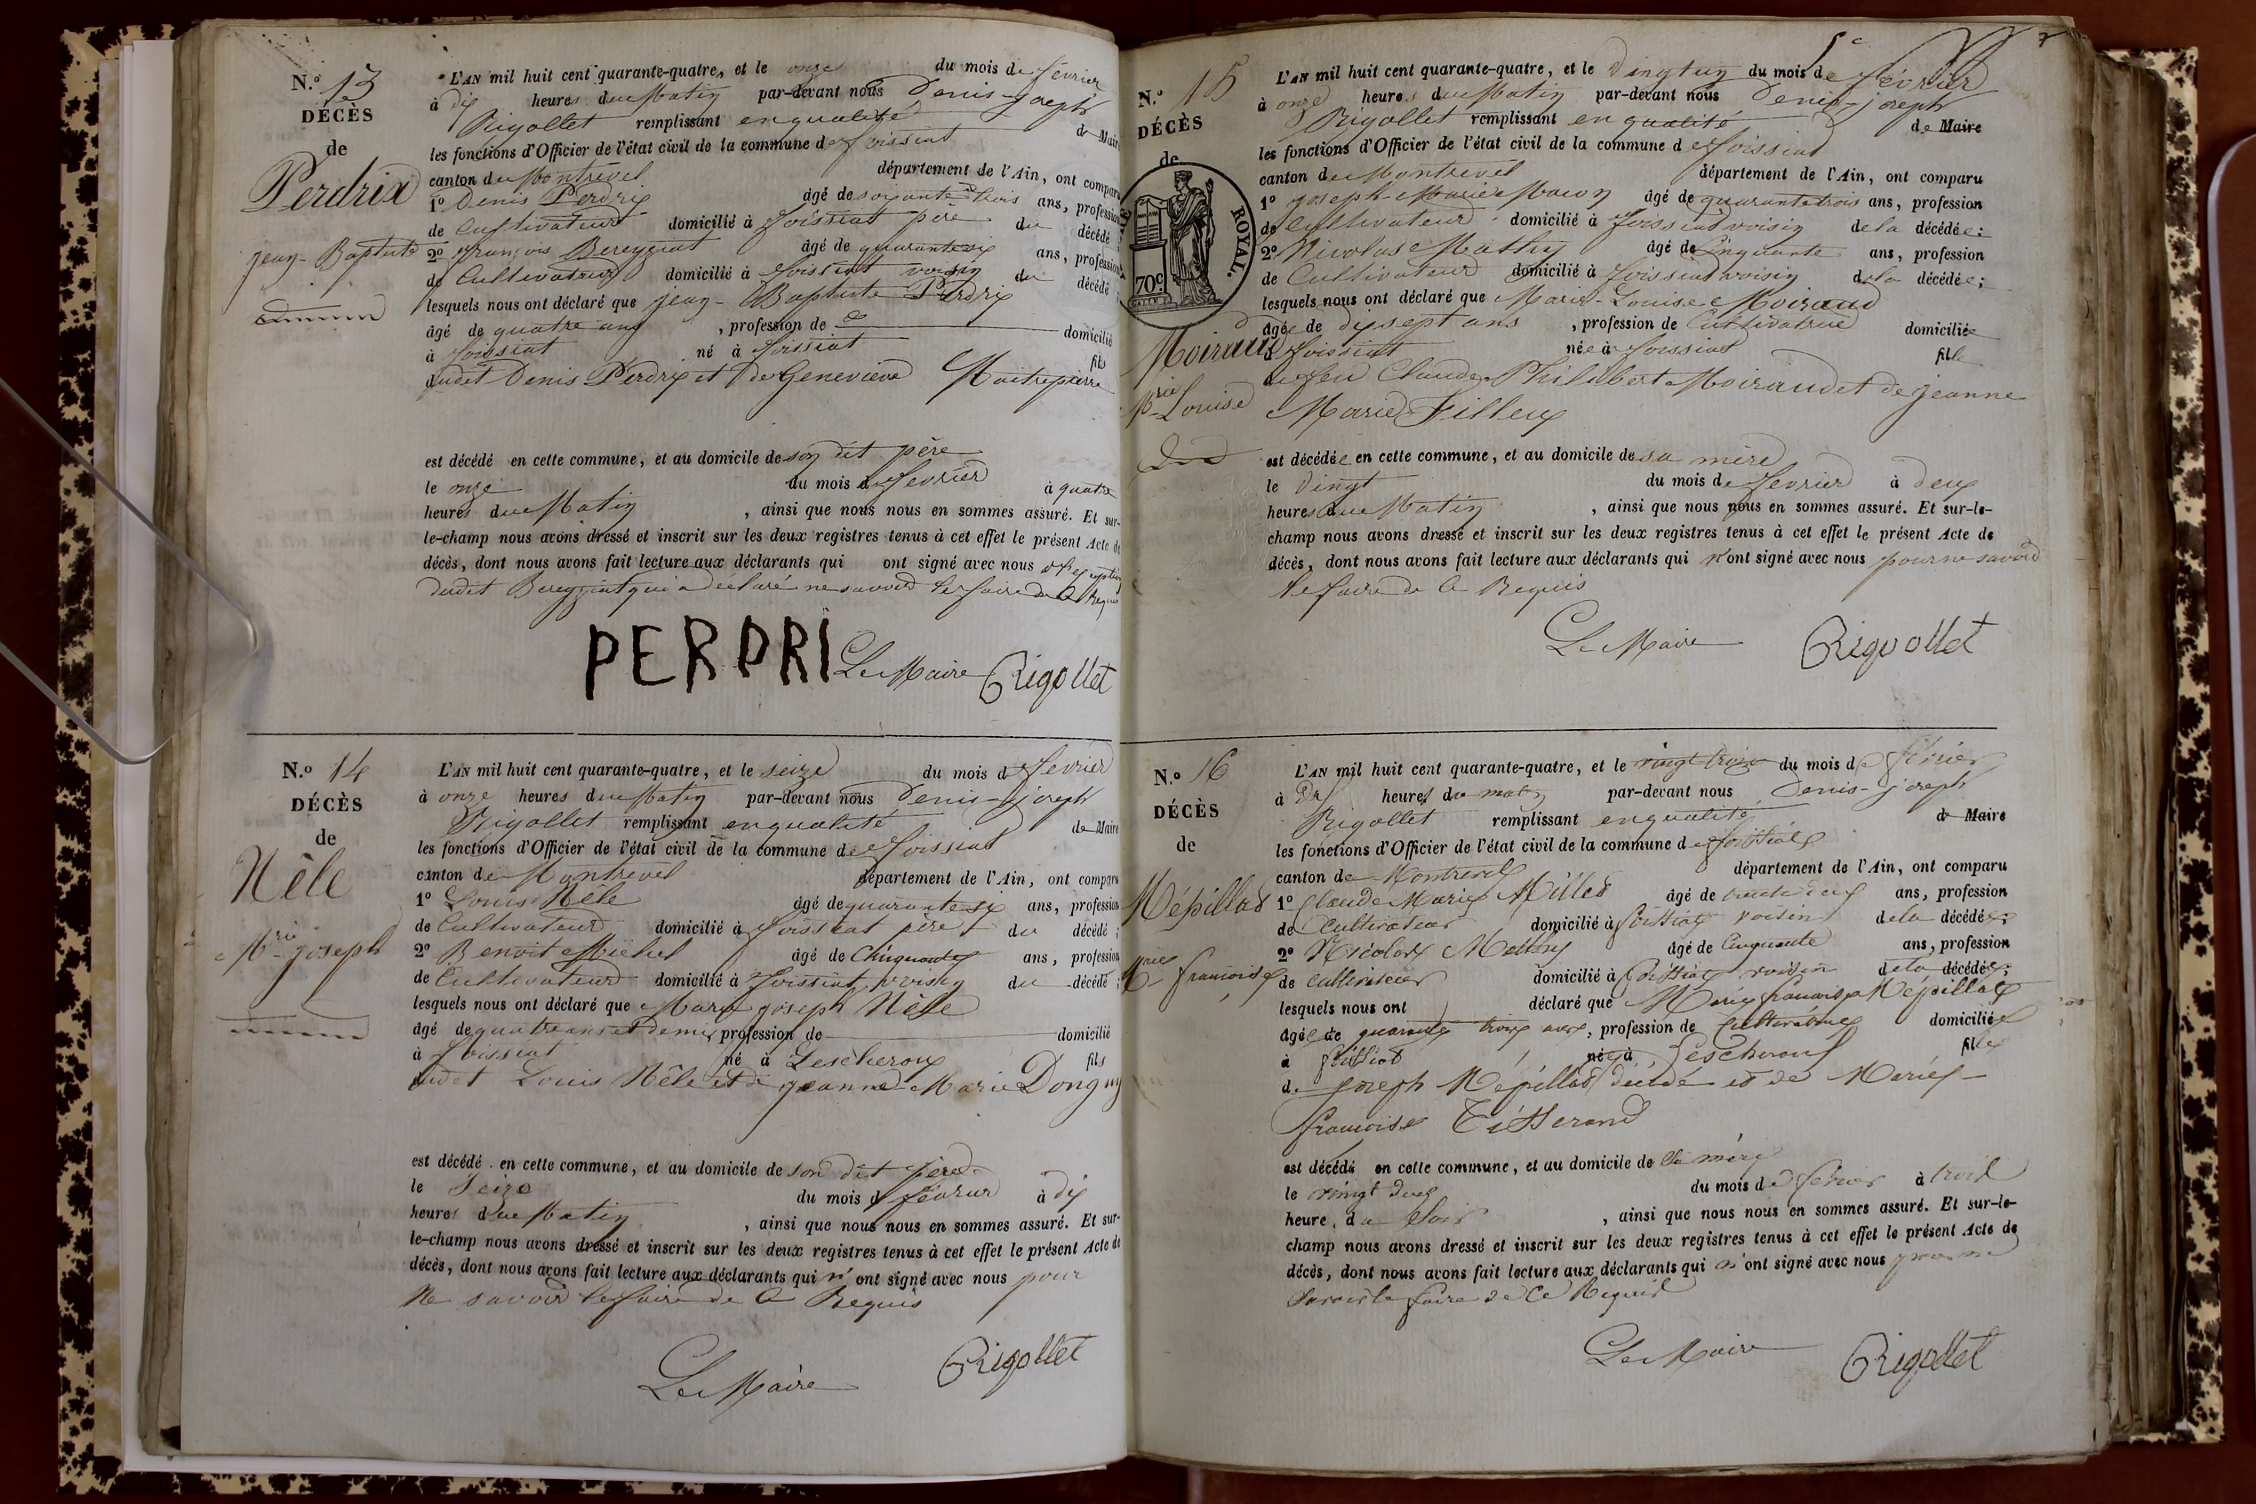 N.o 13
DÉCÈS
de
Perdrix
Jean-Baptiste
L'AN mil huit cent quarante-quatre, et le onze du mois de février
à dix heures du Matin par-devant nous Denis-joseph
Rigollet remplissant en qualité de Maire
les fonctions d'Officier de l'état civil de la commune de foissiat
canton de Montrevel département de l'Ain, ont comparu
1o Denis Perdrix âgé de soixante-trois ans, profession
de Cultivateur domicilié à foissiat père du décédé
2o françois Bereyziat âgé de quarante six ans, profession
de Cultivateur domicilié à foissiat voisin du décédé
lesquels nous ont déclaré que jean-Baptiste Perdrix
âgé de quatre ans, profession de domicilié
à foissiat né à foissiat fils
dudit Denis Perdrix et de Geneviève Maitrepierre
est décédé en cette commune, et au domicile de son dit père
le onze du mois de fevrier à quatre
heures du Matin, ainsi que nous nous en sommes assuré. Et sur-
le-champ nous avons dressé et inscrit sur les deux registres tenus à cet effet le présent Acte de
décès, dont nous avons fait lecture aux déclarants qui ont signé avec nous
dudit Bereyziat qui a déclaré ne savoir le faire de ce Requis
PERDRI Le Maire Rigollet
N.o 14
DÉCÈS
de
Nêle
Mrie joseph
L'AN mil huit cent quarante-quatre, et le seize du mois de fevrier
à onze heures du Matin par-devant nous Denis-joseph
Rigollet remplissant en qualité de Maire
les fonctions d'Officier de l'état civil de la commune de foissiat
canton de Montrevel département de l'Ain, ont comparu
1o Louis Nêle âgé de quarante six ans, profession
de Cultivateur domicilié à foissiat père du décédé;
2o Benoit Michel âgé de Chinquante ans, profession
de Cultivateur domicilié à foissiat voisin du décédé;
lesquels nous ont déclaré que Marie joseph Nêle
âgé de quatre ans et demi, profession de domicilié
à foissiat né à Lescheroux fils
dudit Louis Nêle et de jeanne Marie Donguy
est décédé en cette commune, et au domicile de son dit père
le Seize du mois de février à dix
heures du Matin, ainsi que nous nous en sommes assuré. Et sur-
le-champ nous avons dressé et inscrit sur les deux registres tenus à cet effet le présent Acte de
décès, dont nous avons fait lecture aux déclarants qui n'ont signé avec nous pour
Ne savoir le faire de ce Requis
Le Maire Rigollet
N.o 15
DÉCÈS
de
ROYAL.
70c
Moiraud
Mrie Louise
L'AN mil huit cent quarante-quatre, et le vingtun du mois de février
à onze heures du Matin par-devant nous Denis-joseph
Rigollet remplissant en qualité de Maire
les fonctions d'Officier de l'état civil de la commune de foissiat
canton de Montrevel département de l'Ain, ont comparu
1o joseph Marie Macon âgé de quarante trois ans, profession
de Cultivateur domicilié à foissiat voisin de la décédée;
2o Nicolas Mathy âgé de Cinquante ans, profession
de Cultivateur domicilié à foissiat voisin de la décédée;
lesquels nous ont déclaré que Marie-Louise Moiraud
âgée de dix sept ans, profession de Cultivatrice domiciliée
à foissiat née à foissiat fille
de feu Claude Philibert Moiraud et de jeanne
Marie Filleux
est décédée en cette commune, et au domicile de sa mère
le vingt du mois de fevrier à deux
heures du Matin, ainsi que nous nous en sommes assuré. Et sur-le-
champ nous avons dressé et inscrit sur les deux registres tenus à cet effet le présent Acte de
décès, dont nous avons fait lecture aux déclarants qui n'ont signé avec nous pour ne savoir
le faire de ce Requis
Le Maire Rigollet
N.o 16
DÉCÈS
de
Mépillat
Mrie françoise
L'AN mil huit cent quarante-quatre, et le vingt trois du mois de février
à Dix heures du matin par-devant nous Denis-joseph
Rigollet remplissant en qualité de Maire
les fonctions d'Officier de l'état civil de la commune de foissiat
canton de Montrevel département de l'Ain, ont comparu
1o Claude Marie Millet âgé de trente deux ans, profession
de Cultivateur domicilié à foissiat voisin de la décédée;
2o Nicolas Mathy âgé de Cinquante ans, profession
de cultivateur domicilié à foissiat voisin de la décédée;
lesquels nous ont déclaré que Marie françoise Mépillat
âgée de quarante trois ans, profession de Cultivatrice domiciliée
à foissiat née à Lescheroux fille
de joseph Mépillat décédé et de Marie-
françoise Tisserand
est décédé en cette commune, et au domicile de sa mère
le vingt deux du mois de février à trois
heure, du Soir, ainsi que nous nous en sommes assuré. Et sur-le-
champ nous avons dressé et inscrit sur les deux registres tenus à cet effet le présent Acte de
décès, dont nous avons fait lecture aux déclarants qui n'ont signé avec nous pour ne
savoir le faire de ce Requis
Le Maire Rigollet